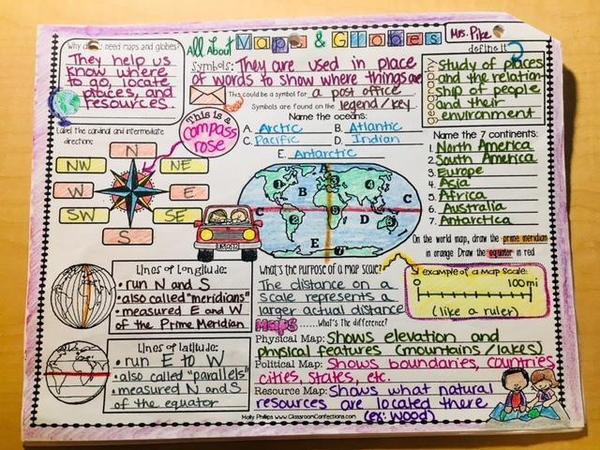 Why do we need maps and globes?
They help us
know where
to go, locate
places, and
resources.
All About Maps & Globes
Mrs. Pike
Symbols: They are used in place
of words to show where things are
This could be a symbol for a post office
Symbols are found on the legend/key
define it
geography
Study of places
and the relation-
ship of people
and their
environment
Label the cardinal and intermediate
directions:
N
NW
NE
W
E
SW
SE
S
This is a
compass
rose
Name the oceans:
A. Arctic
B. Atlantic
C. Pacific
D. Indian
E. Antarctic
A
B
C
C
D
E
Name the 7 continents:
1. North America
2. South America
3. Europe
4. Asia
5. Africa
6. Australia
7. Antarctica
On the world map, draw the prime meridian
in orange. Draw the equator in red
Lines of Longitude:
• run N and S
• also called "meridians"
• measured E and W
of the Prime Meridian
Lines of latitude:
• run E to W
• also called "parallels"
• measured N and S
of the equator
What's the purpose of a map scale?
The distance on a
scale represents a
larger actual distance
example of a Map Scale:
0
100mi
(like a ruler)
Maps ......What's the difference?
Physical Map: Shows elevation and
physical features (mountains/lakes)
Political Map: Shows boundaries, countries,
cities, states, etc.
Resource Map: Shows what natural
resources are located there
(ex: wood)
Molly Phillips www.ClassroomConfections.com